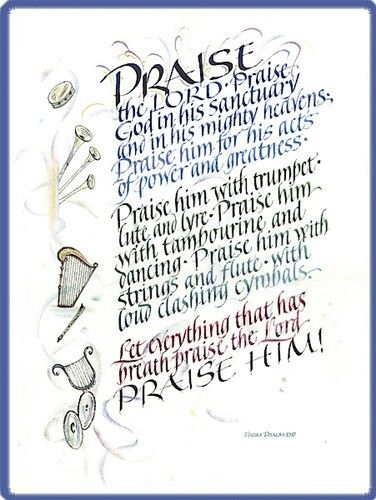 PRAISE
the LORD · Praise
God in his sanctuary
and in his mighty heavens·,
Praise him for his acts
of power and greatness·
Praise him with trumpet·
lute and lyre· Praise him
with tambourine and
dancing · Praise him with
strings and flute · with
loud clashing cymbals·
Let everything that has
breath praise the Lord
PRAISE HIM!
FROM PSALM 150